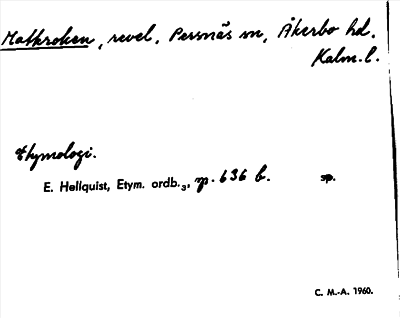 Matkroken, revel, Persnäs sn, Åkerbo hd,
Kalm. l.
Etymologi.
E. Hellquist, Etym. ordb.₃, p. 636 b. sp.
C. M.-A. 1960.